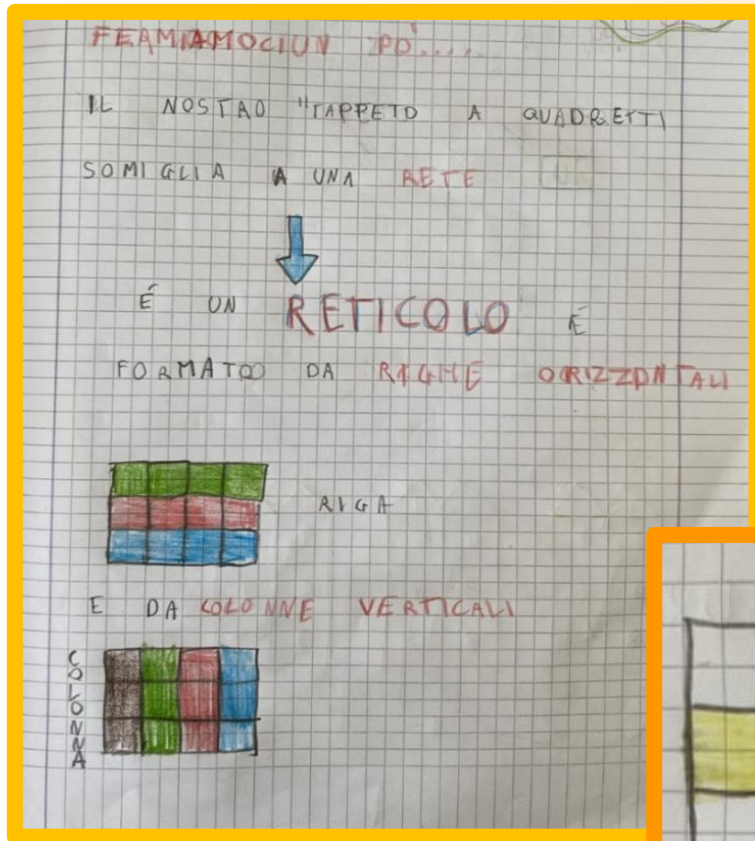 FERMIAMOCI UN PO'....
IL NOSTRO "TAPPETO A QUADRETTI
SOMIGLIA A UNA RETE
É UN RETICOLO É
FORMATO DA RIGHE ORIZZONTALI
RIGA
E DA COLONNE VERTICALI
COLONNA